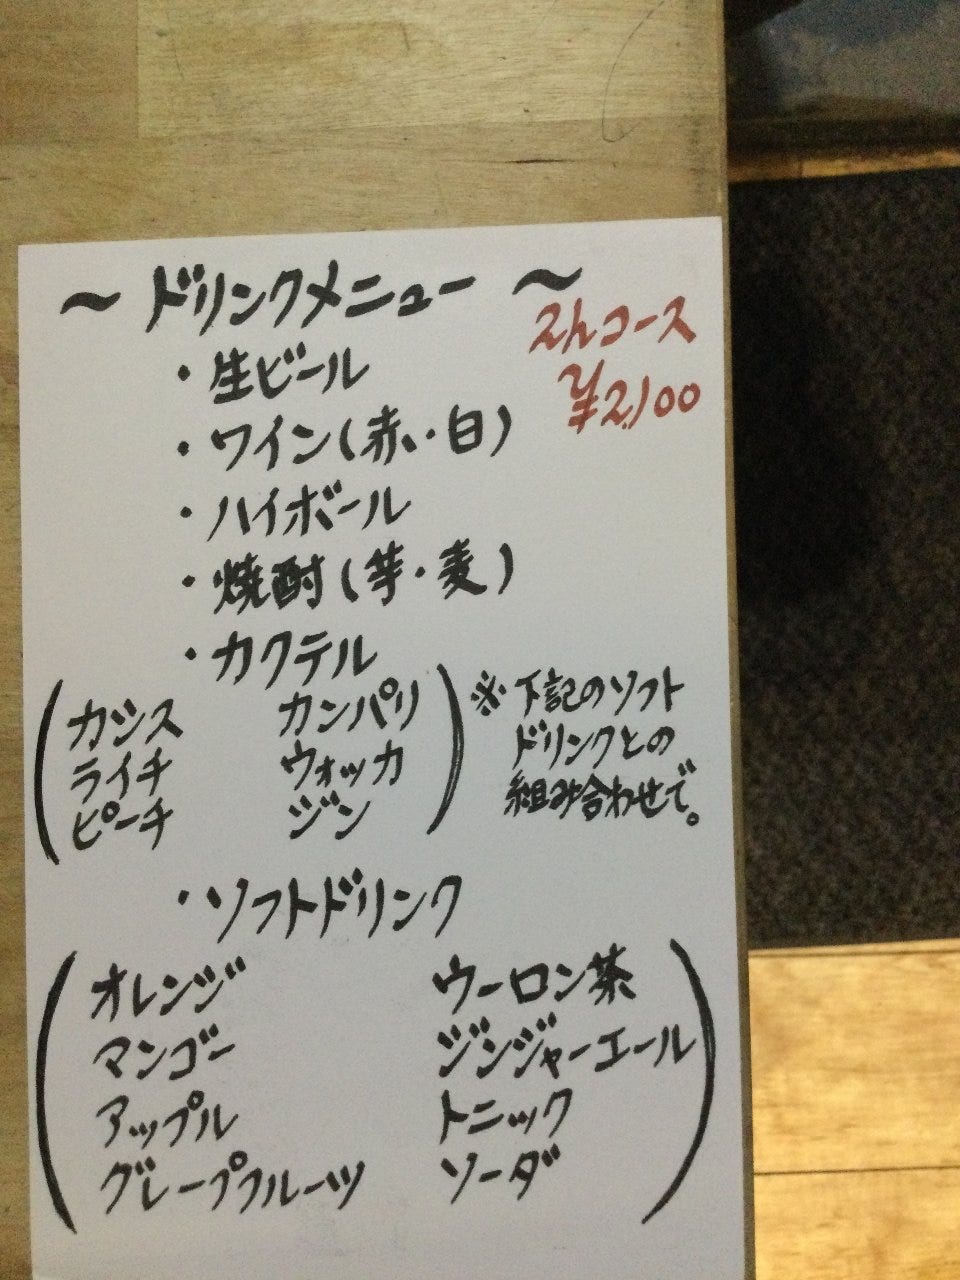 ～ドリンクメニュー～
2hコース
¥2,100
・生ビール
・ワイン(赤い・白)
・ハイボール
・焼酎(芋・麦)
・カクテル
(カシス カンパリ
ライチ ウォッカ
ピーチ ジン)
※下記のソフト
ドリンクとの
組み合わせで。
・ソフトドリンク
(オレンジ ウーロン茶
マンゴー ジンジャーエール
アップル トニック
グレープフルーツ ソーダ)